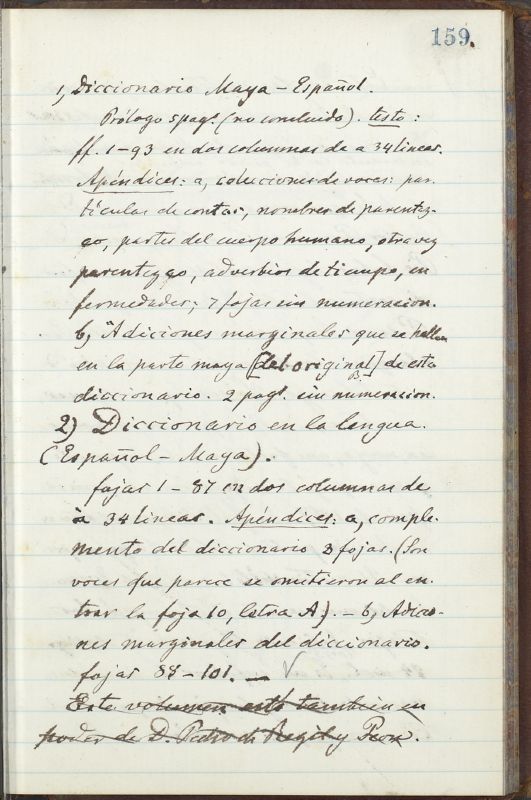 159.
1, Diccionario Maya - Español.
Prólogo 5 pag.s (no concluido). testo:
ff. 1-93 en dos columnas de a 34 lineas.
Apéndices: a, colecciones de voces: par-
tículas de contar, nombres de parentez-
co, partes del cuerpo humano, otra vez
parentezco, adverbios de tiempo, en
fermedades; 7 fojas sin numeracion.
b, "Adiciones marginales que se hallan
en la parte maya [del original] de este
diccionario. 2 pag.s sin numeracion.
2) Diccionario en la lengua.
(Español - Maya).
fojas 1 - 87 en dos columnas de
à 34 lineas. Apéndices: a, comple-
mento del diccionario 3 fojas. (Son
voces que parece se omitieron al en-
trar la foja 10, letra A). - b, Adicio-
nes marginales del diccionario.
fojas 88 - 101. —
Este volumen está tambien en
poder de D. Pedro de Regil y Peon.